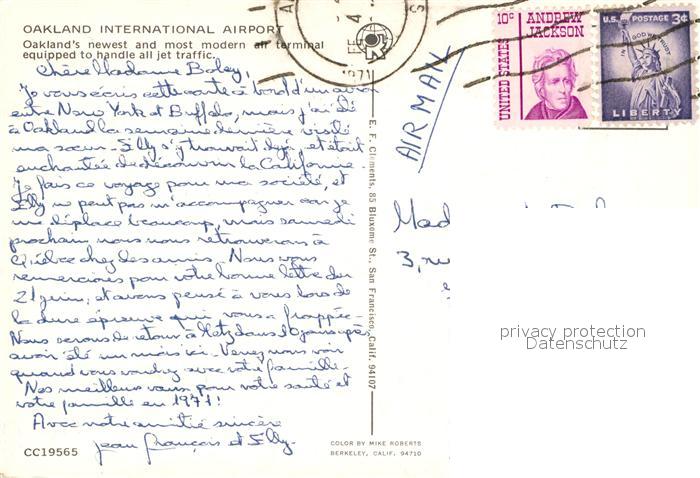 OAKLAND INTERNATIONAL AIRPORT
Oakland's newest and most modern air terminal
equipped to handle all jet traffic.
Chère Madame Boley,
Je vous écris cette carte à bord d'un avion
entre New York et Buffalo, mais j'ai été
à Oakland la semaine dernière visité
ma sœur. Elly s'y trouvait déjà, et était
enchantée de découvrir la Californie.
Je fais ce voyage pour ma société, et
Elly ne peut pas m'accompagner car je
me déplace beaucoup, mais samedi
prochain nous nous retrouverons à
Québec chez des amis. Nous vous
remercions pour votre bonne lettre du
21 juin, et avons pensé à vous lors de
la dure épreuve qui vous a frappée.
Nous serons de retour à Metz dans 10 jours après
avoir été un mois ici. Venez nous voir
quand vous voudrez avec votre famille.
Nos meilleurs vœux pour votre santé et
votre famille en 1971!
Avec notre amitié sincère
Jean François et Elly.
CC19565
COLOR BY MIKE ROBERTS
BERKELEY, CALIF. 94710
E. F. Clements, 85 Bluxome St., San Francisco, Calif. 94107
1971
10c ANDREW
JACKSON
UNITED STATES
U.S. POSTAGE 3¢
IN GOD WE TRUST
LIBERTY
AIR MAIL
Mad
3, ru
privacy protection
Datenschutz